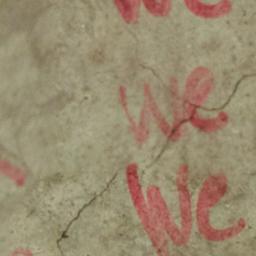 we
we
we